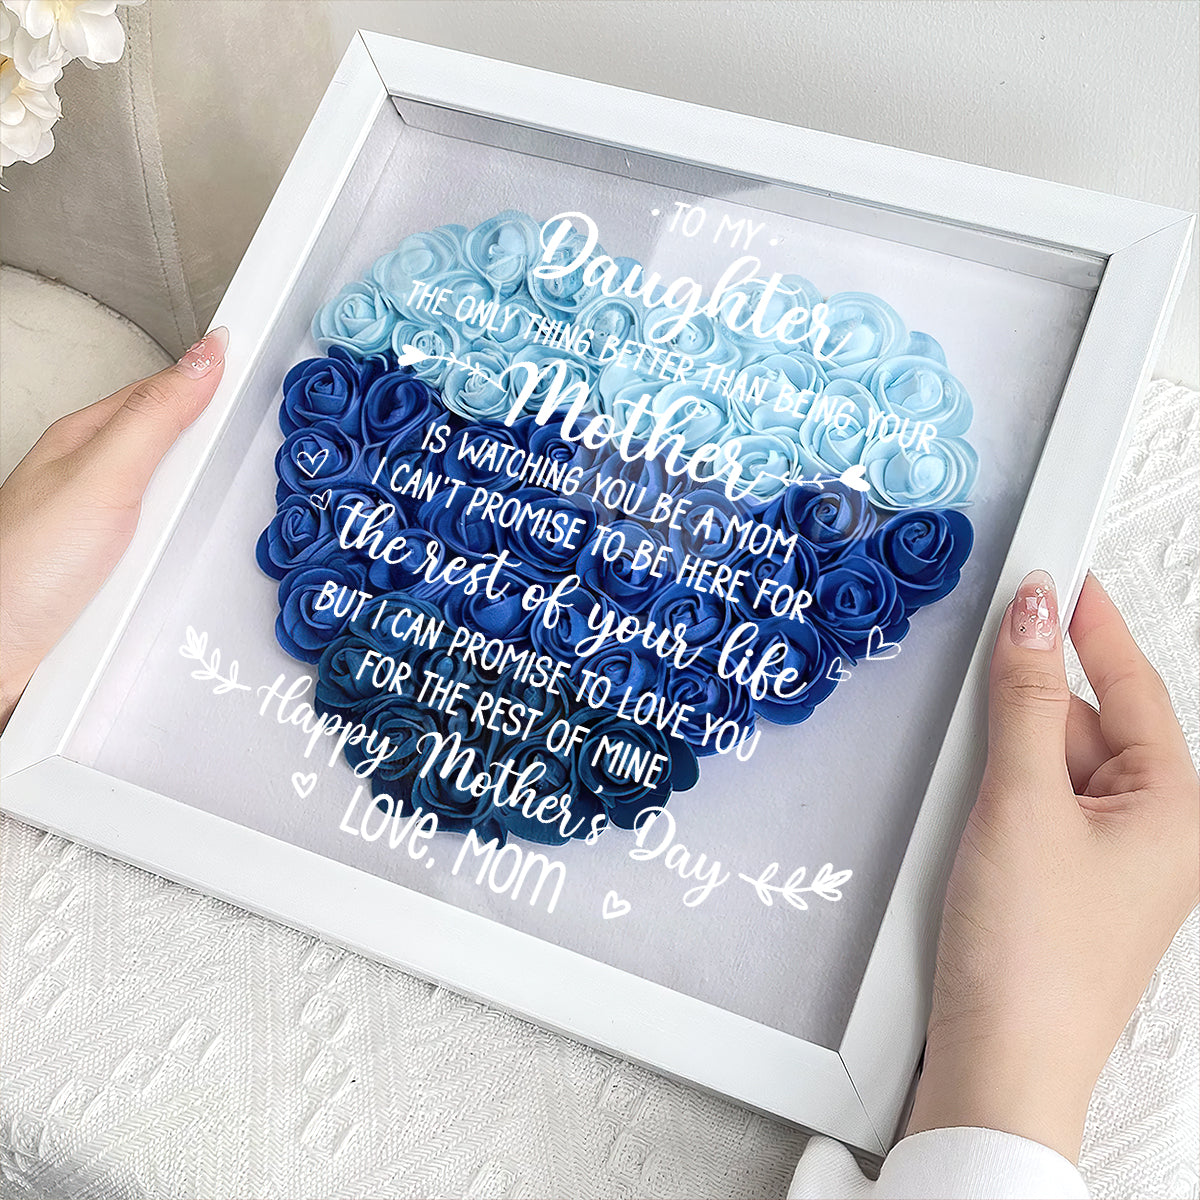 TO MY
Daughter
THE ONLY THING BETTER THAN BEING YOUR
Mother
IS WATCHING YOU BE A MOM
I CAN'T PROMISE TO BE HERE FOR
the rest of your life
BUT I CAN PROMISE TO LOVE YOU
FOR THE REST OF MINE
Happy Mother's Day
LOVE, MOM